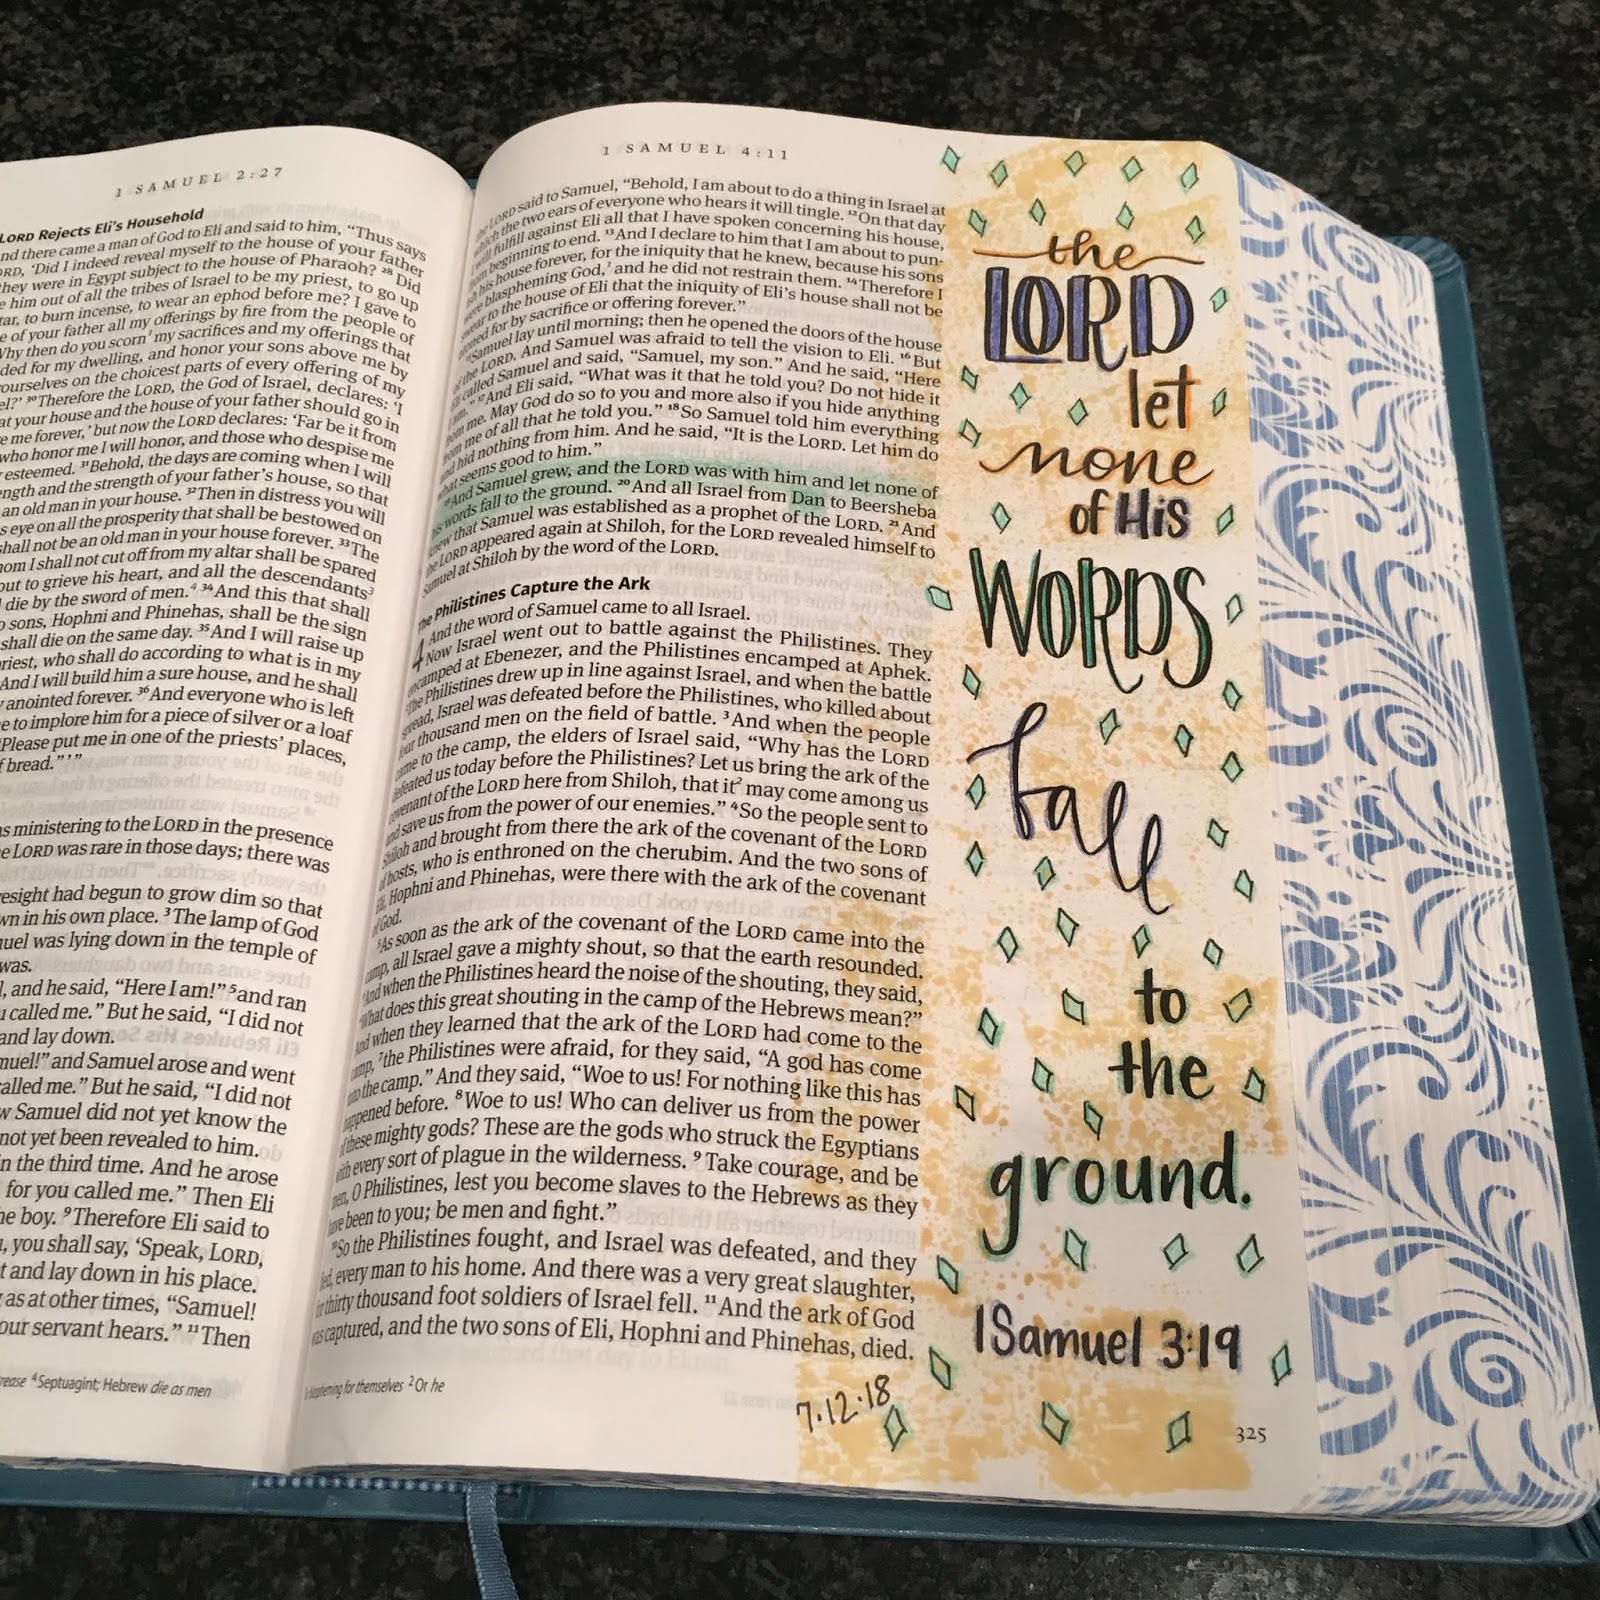 1 SAMUEL 2:27
LORD Rejects Eli's Household
and there came a man of God to Eli and said to him, "Thus says
'Did I indeed reveal myself to the house of your father
they were in Egypt subject to the house of Pharaoh? 28 Did
him out of all the tribes of Israel to be my priest, to go up
to burn incense, to wear an ephod before me? I gave to
of your father all my offerings by fire from the people of
Why then do you scorn my sacrifices and my offerings that
for my dwelling, and honor your sons above me by
yourselves on the choicest parts of every offering of my
30 Therefore the LORD, the God of Israel, declares: 'I
that your house and the house of your father should go in
me forever,' but now the LORD declares: 'Far be it from
who honor me I will honor, and those who despise me
esteemed. 31 Behold, the days are coming when I will
and the strength of your father's house, so that
an old man in your house. 32 Then in distress you will
eye on all the prosperity that shall be bestowed on
shall not be an old man in your house forever. 33 The
whom I shall not cut off from my altar shall be spared
out to grieve his heart, and all the descendants3
die by the sword of men.4 34 And this that shall
sons, Hophni and Phinehas, shall be the sign
shall die on the same day. 35 And I will raise up
priest, who shall do according to what is in my
And I will build him a sure house, and he shall
anointed forever. 36 And everyone who is left
to implore him for a piece of silver or a loaf
"Please put me in one of the priests' places,
of bread." ' "
ministering to the LORD in the presence
LORD was rare in those days; there was
eyesight had begun to grow dim so that
own in his own place. 3 The lamp of God
Samuel was lying down in the temple of
was.
and he said, "Here I am!" 5 and ran
called me." But he said, "I did not
and lay down.
and Samuel arose and went
called me." But he said, "I did not
Samuel did not yet know the
not yet been revealed to him.
the third time. And he arose
for you called me." Then Eli
boy. 9 Therefore Eli said to
you shall say, 'Speak, LORD,
and lay down in his place.
as at other times, "Samuel!
your servant hears." 11 Then
4 Septuagint; Hebrew die as men
1 SAMUEL 4:11
LORD said to Samuel, "Behold, I am about to do a thing in Israel at
which the two ears of everyone who hears it will tingle. 12 On that day
I will fulfill against Eli all that I have spoken concerning his house,
from beginning to end. 13 And I declare to him that I am about to pun-
ish his house forever, for the iniquity that he knew, because his sons
were blaspheming God,1 and he did not restrain them. 14 Therefore I
swear to the house of Eli that the iniquity of Eli's house shall not be
atoned for by sacrifice or offering forever."
Samuel lay until morning; then he opened the doors of the house
of the LORD. And Samuel was afraid to tell the vision to Eli. 16 But
Eli called Samuel and said, "Samuel, my son." And he said, "Here
I am." 17 And Eli said, "What was it that he told you? Do not hide it
from me. May God do so to you and more also if you hide anything
from me of all that he told you." 18 So Samuel told him everything
and hid nothing from him. And he said, "It is the LORD. Let him do
what seems good to him."
19 And Samuel grew, and the LORD was with him and let none of
his words fall to the ground. 20 And all Israel from Dan to Beersheba
knew that Samuel was established as a prophet of the LORD. 21 And
the LORD appeared again at Shiloh, for the LORD revealed himself to
Samuel at Shiloh by the word of the LORD.
The Philistines Capture the Ark
4 And the word of Samuel came to all Israel.
Now Israel went out to battle against the Philistines. They
encamped at Ebenezer, and the Philistines encamped at Aphek.
The Philistines drew up in line against Israel, and when the battle
spread, Israel was defeated before the Philistines, who killed about
four thousand men on the field of battle. 3 And when the people
came to the camp, the elders of Israel said, "Why has the LORD
defeated us today before the Philistines? Let us bring the ark of the
covenant of the LORD here from Shiloh, that it2 may come among us
and save us from the power of our enemies." 4 So the people sent to
Shiloh and brought from there the ark of the covenant of the LORD
of hosts, who is enthroned on the cherubim. And the two sons of
Eli, Hophni and Phinehas, were there with the ark of the covenant
of God.
5 As soon as the ark of the covenant of the LORD came into the
camp, all Israel gave a mighty shout, so that the earth resounded.
And when the Philistines heard the noise of the shouting, they said,
"What does this great shouting in the camp of the Hebrews mean?"
And when they learned that the ark of the LORD had come to the
camp, 7 the Philistines were afraid, for they said, "A god has come
into the camp." And they said, "Woe to us! For nothing like this has
happened before. 8 Woe to us! Who can deliver us from the power
of these mighty gods? These are the gods who struck the Egyptians
with every sort of plague in the wilderness. 9 Take courage, and be
men, O Philistines, lest you become slaves to the Hebrews as they
have been to you; be men and fight."
10 So the Philistines fought, and Israel was defeated, and they
fled, every man to his home. And there was a very great slaughter,
for thirty thousand foot soldiers of Israel fell. 11 And the ark of God
was captured, and the two sons of Eli, Hophni and Phinehas, died.
blaspheming for themselves 2 Or he
the
LORD
let
none
of His
WORDS
fall
to
the
ground.
1 Samuel 3:19
7.12.18
325